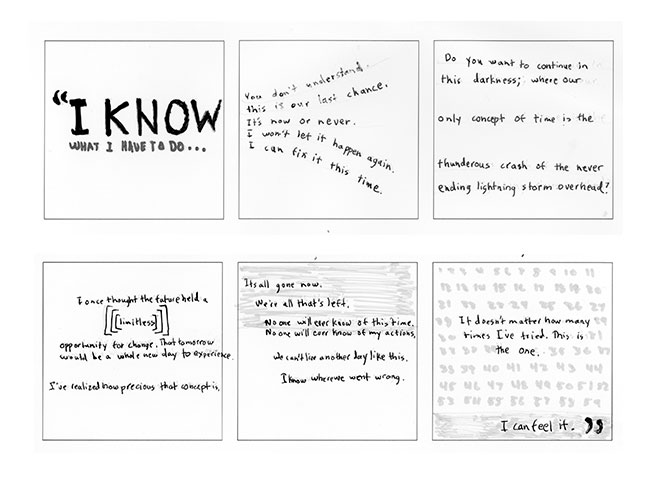 “I KNOW
WHAT I HAVE TO DO...
You don't understand.
this is our last chance.
It's now or never.
I won't let it happen again.
I can fix it this time.
Do you want to continue in
this darkness; where our
only concept of time is the
thunderous crash of the never
ending lightning storm overhead?
I once thought the future held a
[[[limitless]]]
opportunity for change. That tomorrow
would be a whole new day to experience.
I've realized how precious that concept is.
Its all gone now.
We're all that's left.
No one will ever know of this time.
No one will ever know of my actions.
We can't live another day like this.
I know where we went wrong.
It doesn't matter how many
times I've tried. This is
the one.
I can feel it. ”